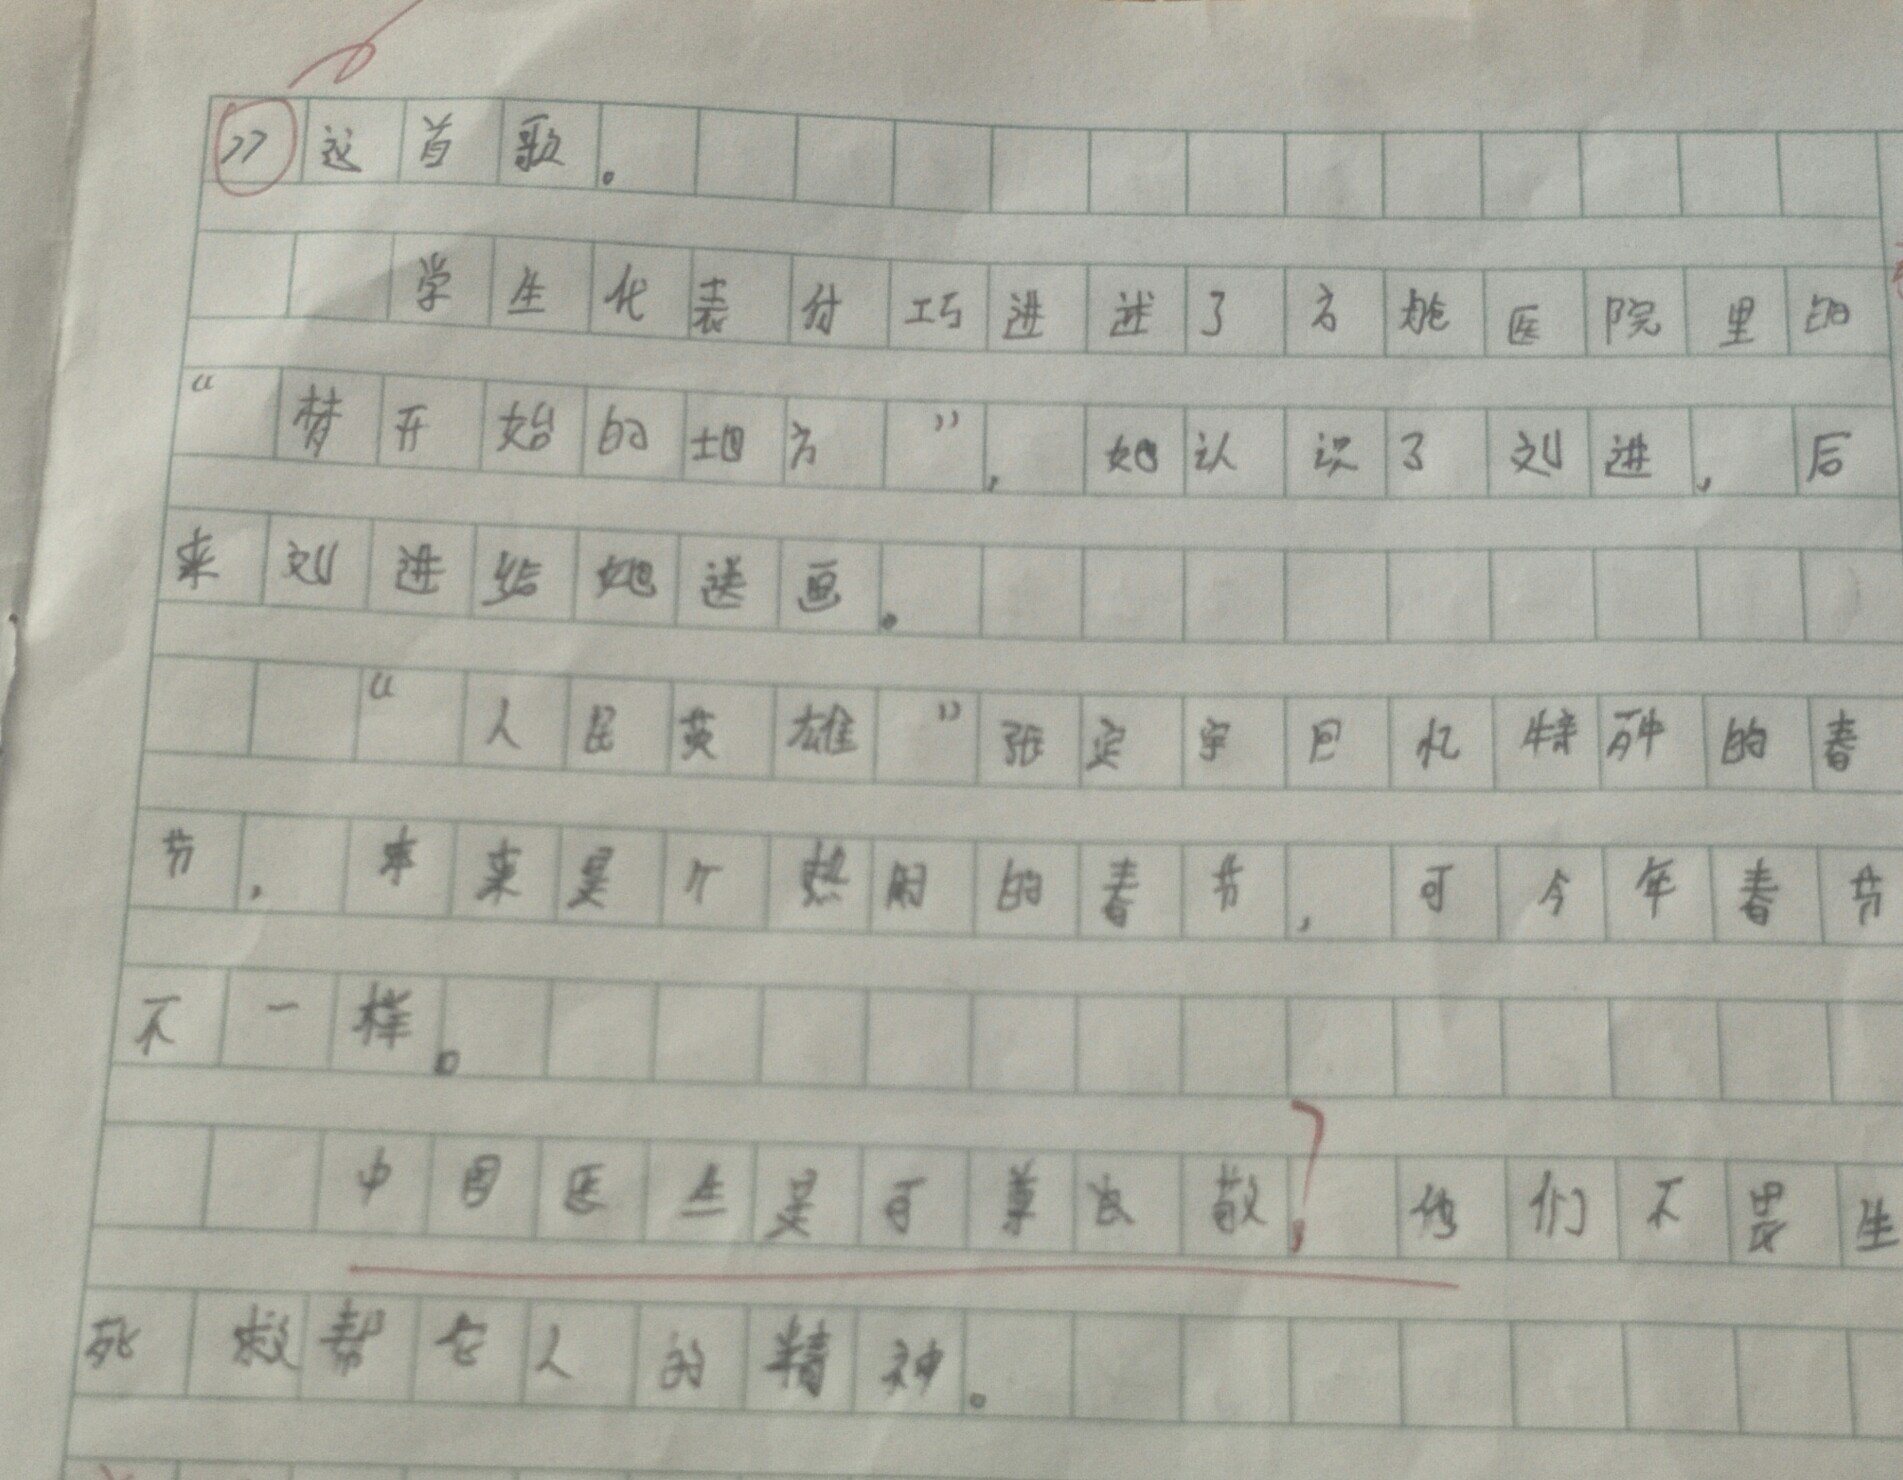 》这首歌。
学生代表付巧进述了方舱医院里的
“梦开始的地方”，她认识了刘进，后
来刘进给她送画。
“人民英雄”张定宇回忆特殊的春
节，本来是个热闹的春节，可今年春节
不一样。
中国医生是可尊以敬，他们不畏生
死救帮它人的精神。